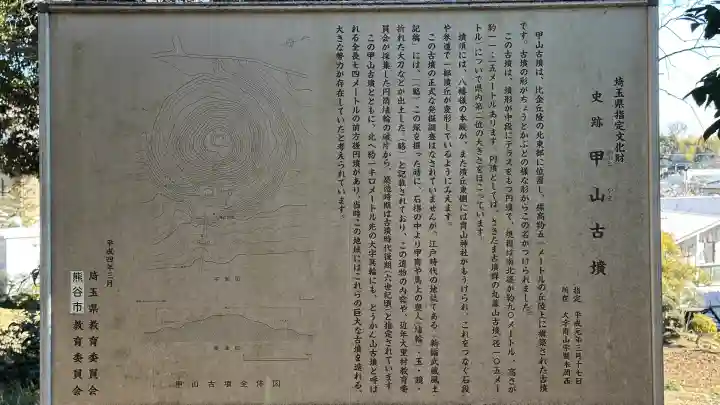 埼玉県指定文化財
史跡 甲山古墳
かぶと やま
指定 平成元年三月十七日
所在 大字冑山字賢木岡西
甲山古墳は、比企丘陵の北東部に位置し、標高約五一メートルの丘陵上に構築された古墳
です。古墳の形がちょうどかぶとの様な形からこの名がつけられました。
この古墳は、墳形が中段にテラスをもつ円墳で、規模は南北径が約九〇メートル・高さが
約一一・二五メートルあります。円墳としては、さきたま古墳群の丸墓山古墳(径一〇五メー
トル)について県内第二位の大きさをほこっています。
墳頂には、八幡様の本殿が、また墳丘東側には冑山神社がもうけられ、これをつなぐ石段
や参道で一部墳丘が変形しているようにみえます。
この古墳の正式な発掘調査はなされていませんが、江戸時代の地誌である「新編武蔵風土
記稿」には、「(略)この塚を掘った時に、石槨の中より甲冑や馬上の塑人(埴輪)・玉・鏡・
折れた太刀などが出土した。(略)」と記載されており、この遺物の内容や、近年大里村教育委
員会が採集した円筒埴輪の破片から、築造時期は古墳時代後期(六世紀頃)と推定されています。
この甲山古墳とともに、北へ約一キロメートル先の大字箕輪にも、とうかん山古墳と呼ば
れる全長七四メートルの前方後円墳があり、当時この地域にはこれらの巨大な古墳を造れる、
大きな勢力が存在していたと考えられています。
平成四年三月
埼玉県教育委員会
熊谷市教育委員会
甲山古墳全体図